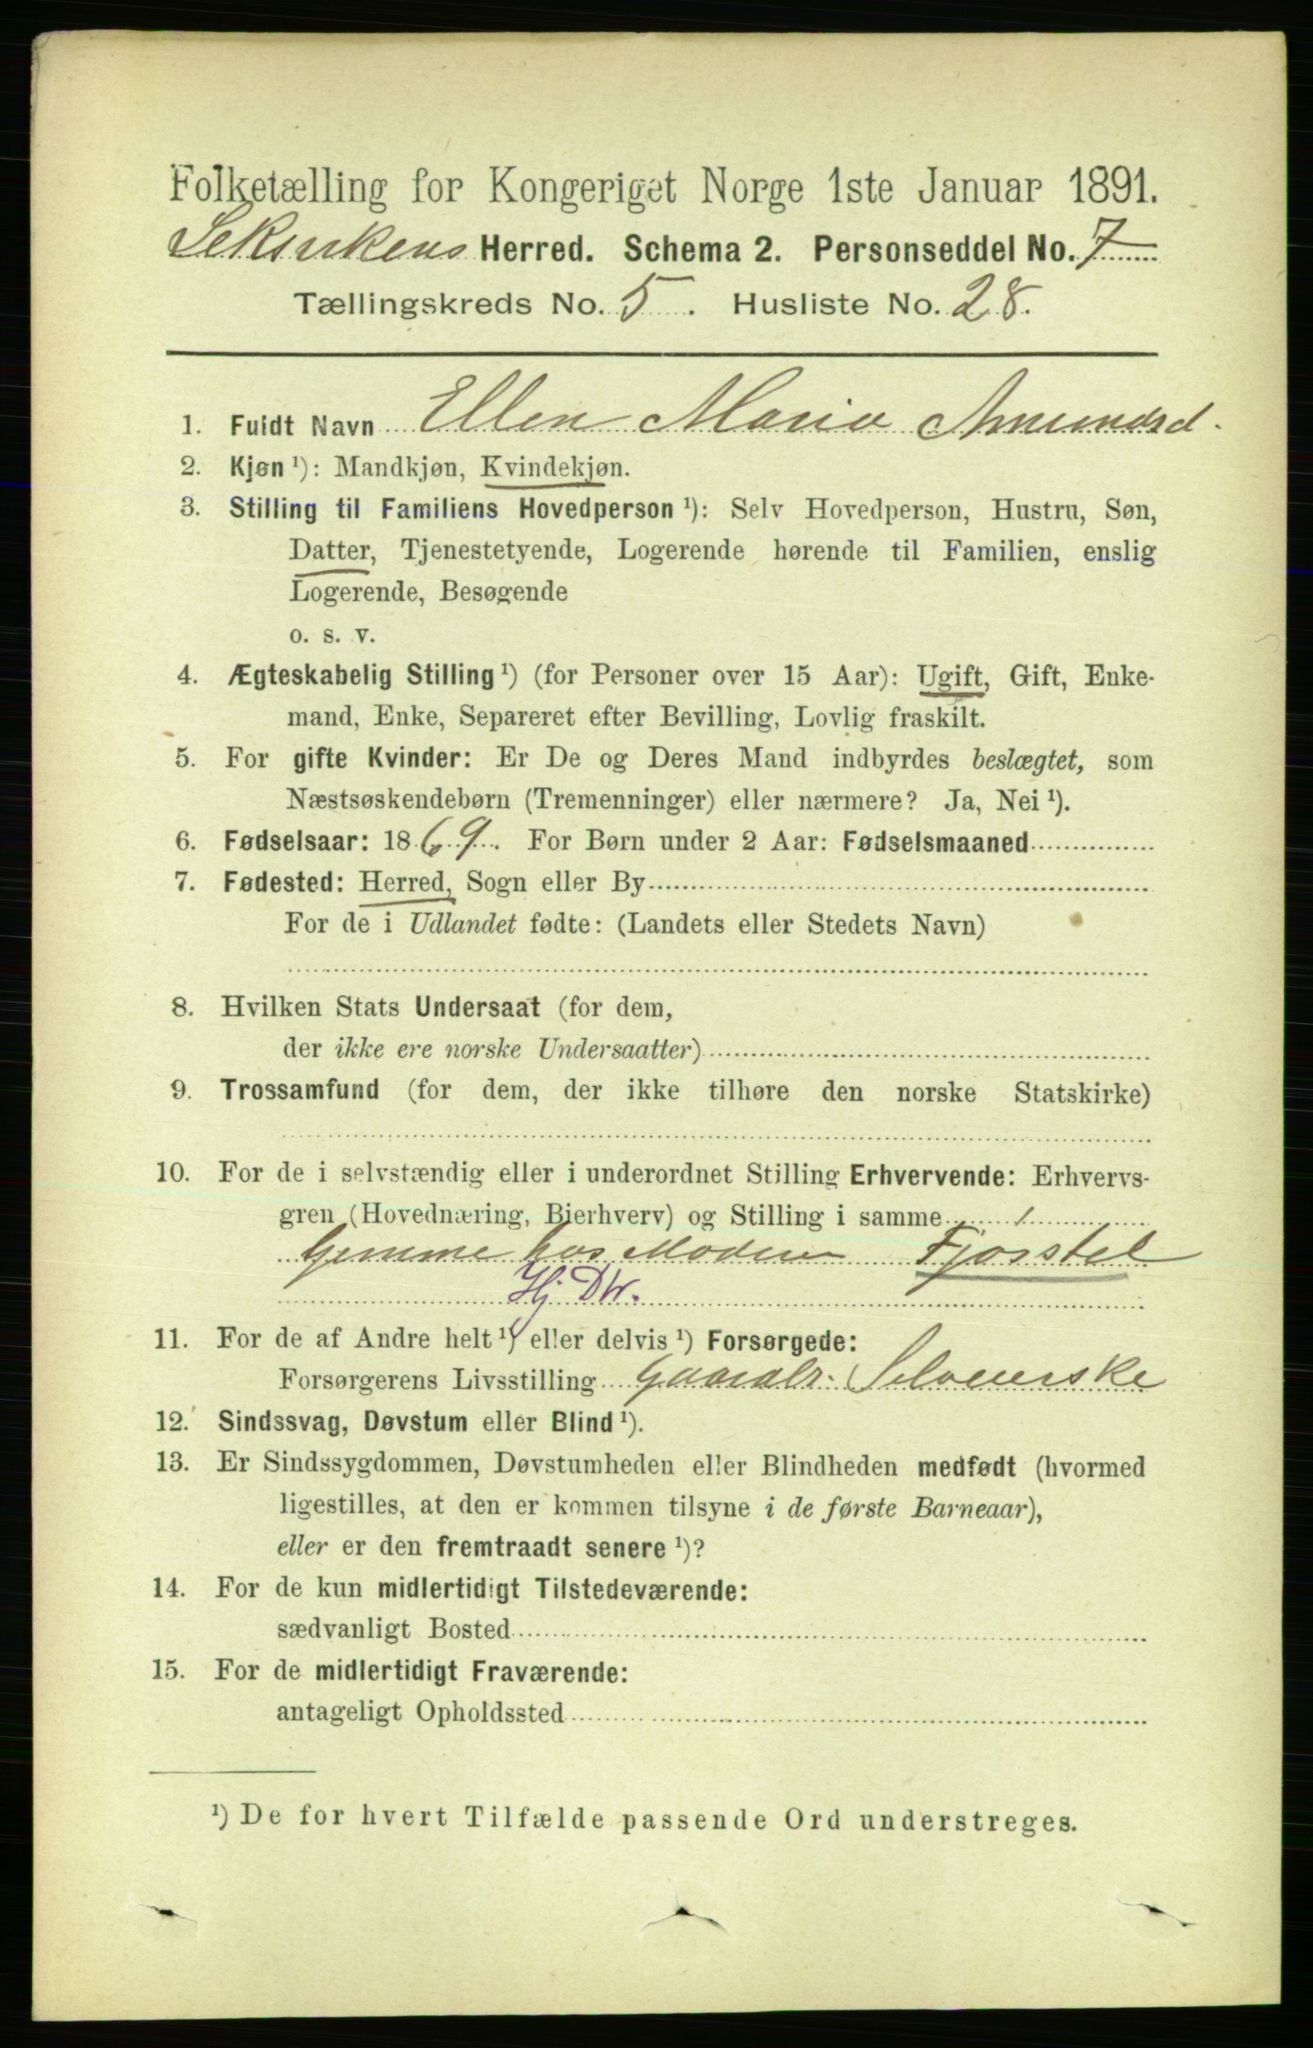 Folketælling for Kongeriget Norge 1ste Januar 1891.
Leksvikens Herred. Schema 2. Personseddel No. 7
Tællingskreds No. 5. Husliste No. 28.
1. Fuldt Navn Ellen Maria Amundsd.
2. Kjøn ¹): Mandkjøn, Kvindekjøn.
3. Stilling til Familiens Hovedperson ¹): Selv Hovedperson, Hustru, Søn,
Datter, Tjenestetyende, Logerende hørende til Familien, enslig
Logerende, Besøgende
o. s. v.
4. Ægteskabelig Stilling ¹) (for Personer over 15 Aar): Ugift, Gift, Enke-
mand, Enke, Separeret efter Bevilling, Lovlig fraskilt.
5. For gifte Kvinder: Er De og Deres Mand indbyrdes beslægtet, som
Næstsøskendebørn (Tremenninger) eller nærmere? Ja, Nei ¹).
6. Fødselsaar: 1869. For Børn under 2 Aar: Fødselsmaaned
7. Fødested: Herred, Sogn eller By
For de i Udlandet fødte: (Landets eller Stedets Navn)
8. Hvilken Stats Undersaat (for dem,
der ikke ere norske Undersaatter)
9. Trossamfund (for dem, der ikke tilhøre den norske Statskirke)
10. For de i selvstændig eller i underordnet Stilling Erhvervende: Erhvervs-
gren (Hovednæring, Bierhverv) og Stilling i samme
hjemme hos Moderen Fjøsstel
Hj. Dtr.
11. For de af Andre helt ¹) eller delvis ¹) Forsørgede:
Forsørgerens Livsstilling Gaardbr. Selveierske
12. Sindssvag, Døvstum eller Blind ¹).
13. Er Sindssygdommen, Døvstumheden eller Blindheden medfødt (hvormed
ligestilles, at den er kommen tilsyne i de første Barneaar),
eller er den fremtraadt senere ¹)?
14. For de kun midlertidigt Tilstedeværende:
sædvanligt Bosted
15. For de midlertidigt Fraværende:
antageligt Opholdssted
¹) De for hvert Tilfælde passende Ord understreges.